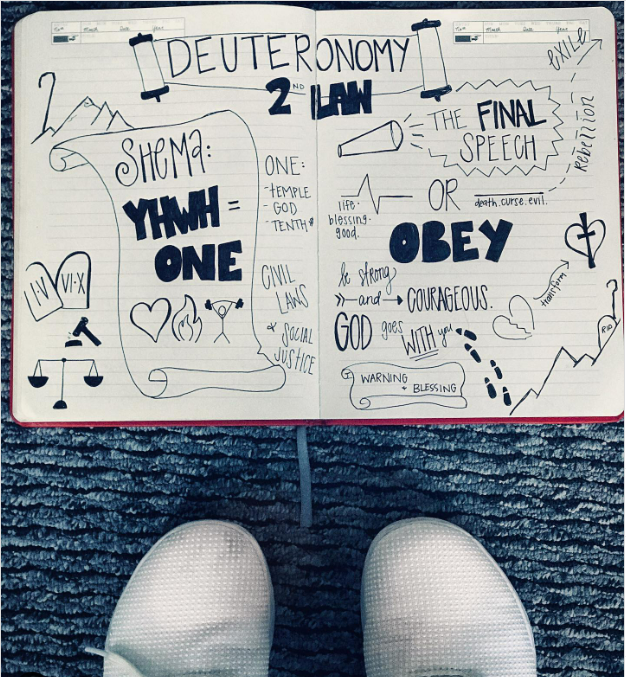 DEUTERONOMY
2ND LAW
SHEMA:
YHWH =
ONE
ONE:
-TEMPLE
- GOD
-TENTH*
CIVIL
LAWS
& SOCIAL
JUSTICE
I-V VI-X
THE FINAL
SPEECH
exile
Rebellion
life.
blessing.
good.
OR
death.curse.evil.
OBEY
be strong
and
COURAGEOUS.
GOD goes
WITH you
transform
WARNING
+ BLESSING
RIP